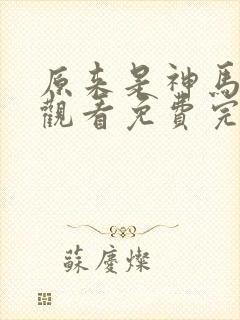 原来是神馬
觀看免費完
蘇慶燦